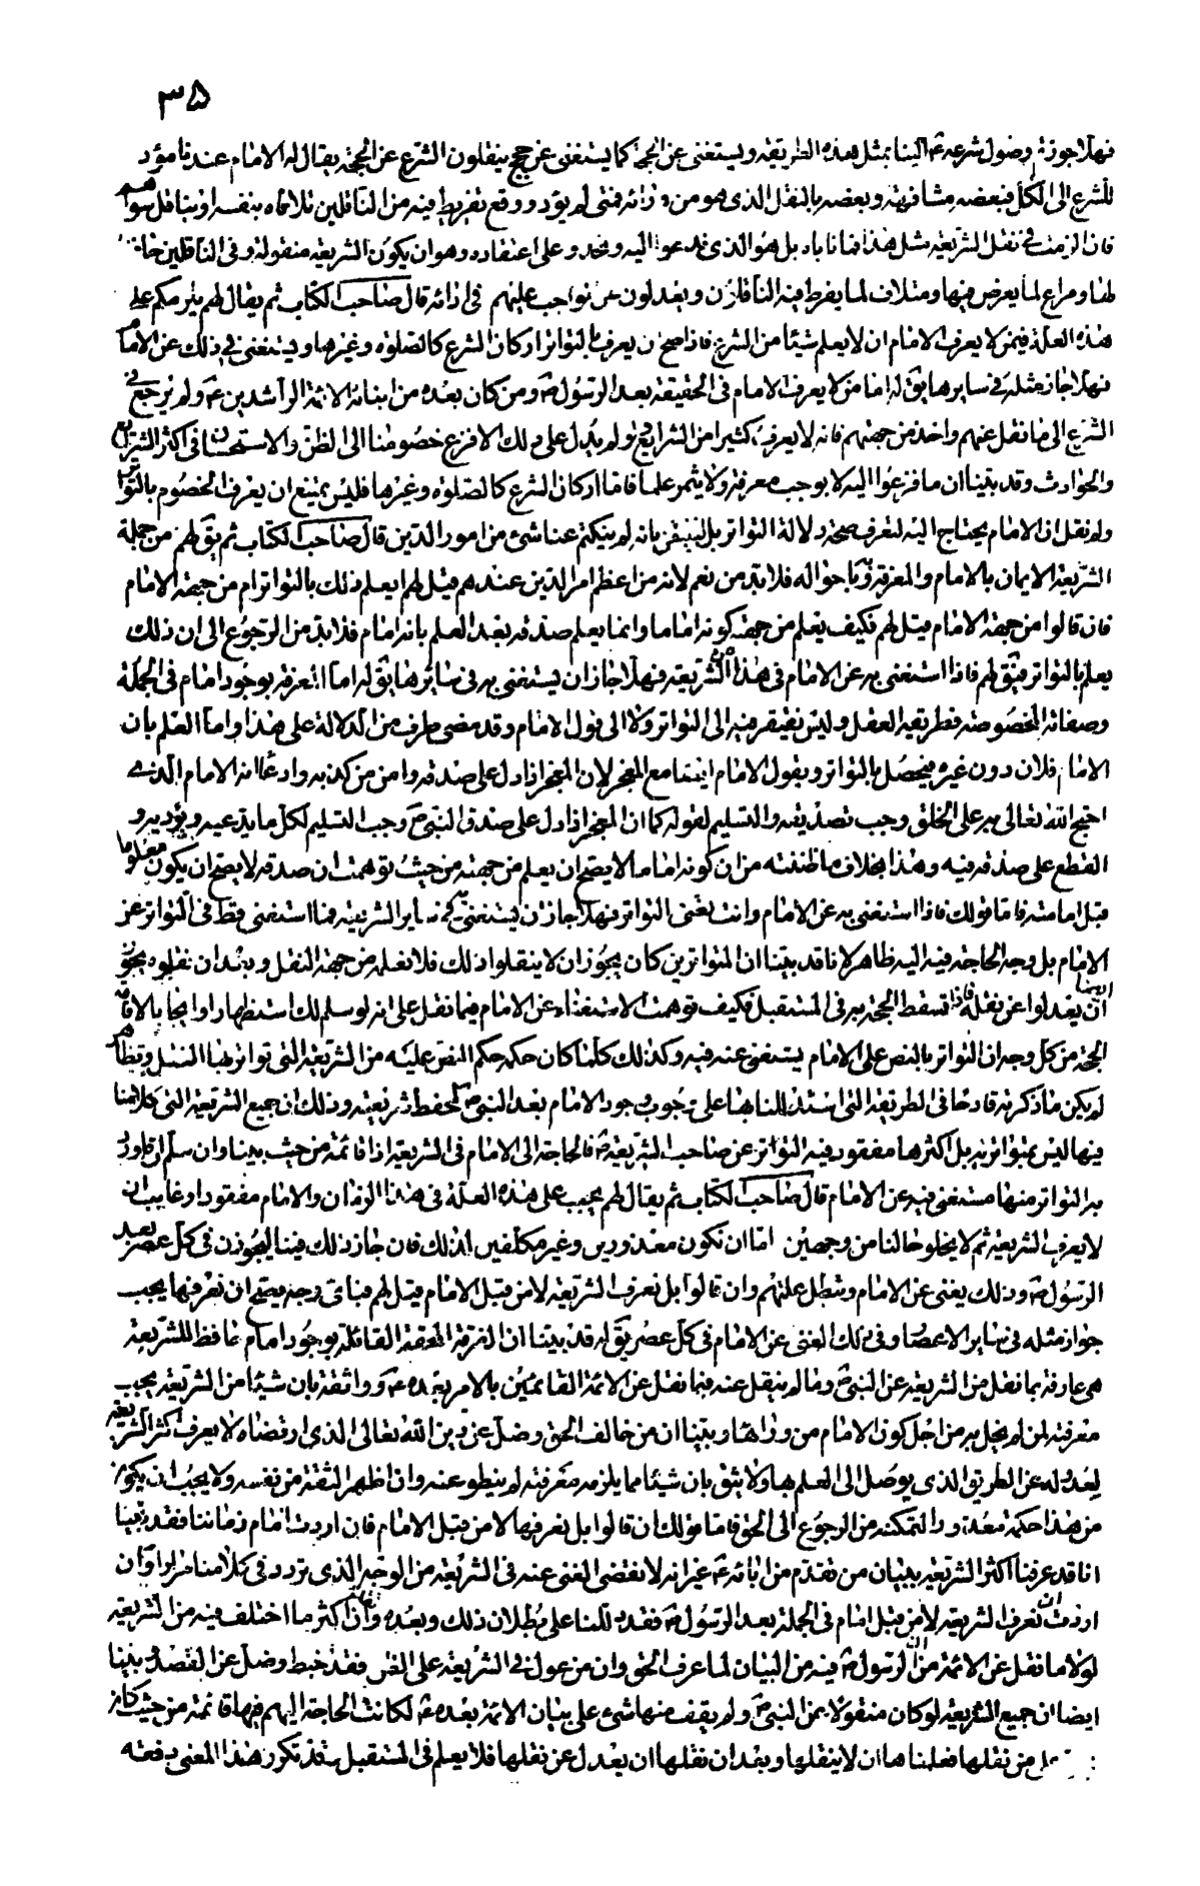 ٣٥
فهلا جوزتم وصول شرعه ع الينا بمثل هذه الطريقة ويستغنى عن الحجة كما يستغنى عن حجج ينقلون الشرع عن الحجة يقال له الامام عندنا مؤد
للشرع الى الكل فبعضه مشافهة وبعضه بالنقل الذى هو من ورائه فمتى لم يؤد ووقع تفريط فيه من الناقلين تلافاه بنفسه او بناقل سواهم
فان الزمت فى نقل الشريعة مثل هذا فما ناباه بل هو الذى ندعوا اليه ونحدو على اعتقاده وهو ان يكون الشريعة منقولة وفى الناقلين حافظ
لها ومراع لما يعرض فيها ومتلاف لما يفرط فيه الناقلون ويعدلون عن الواجب عليهم فى ادائه قال صاحب الكتاب ثم يقال لهم يلزمكم على
هذه العلة فيمن لا يعرف الامام ان لا يعلم شيئا من الشرع فاذا صح ان يعرف بالتواتر اركان الشرع كالصلوة وغيرها ويستغنى فى ذلك عن الامام
فهلا جاز مثله فى سايرها يق له اما من لا يعرف الامام فى الحقيقة بعد الرسول ص ومن كان بعده من ابنائه الائمة الراشدين ع ولم يرجع فى
الشرع الى ما نقل عنهم واخذ من جهتهم فانه لا يعرف كثيرا من الشرايع ولو لم يدل على ذلك الا فزع خصومنا الى الظن والاستحسان فى اكثر الشرايع
والحوادث وقد بينا ان ما فزعوا اليه لا يوجب معرفة ولا يثمر علما فاما اركان الشرع كالصلوة وغيرها فليس يمتنع ان يعرف الخصوم بالتواتر
ولم نقل ان الامام يحتاج اليه لتعرف صحة دلالة التواتر بل لنثق بانه لم ينكتم عنا شئ من امور الدين قال صاحب الكتاب ثم يق لهم من جملة
الشريعة الايمان بالامام والمعرفة به وباحواله فلا بد من نعم لانه من اعظم امر الدين عندهم قيل لهم ايعلم ذلك بالتواتر ام من جهة الامام
فان قالوا من جهة الامام قيل لهم فكيف يعلم من جهته كونه اماما وانما يعلم صدقه بعد العلم بانه امام فلا بد من الرجوع الى ان ذلك
يعلم بالتواتر فيق لهم فاذا استغنى به عن الامام فى هذا الشريعة فهلا جاز ان يستغنى به فى سائرها يق له اما المعرفة بوجود امام فى الجملة
وصفاته المخصوصة فطريقه العقل وليس نفتقر فيه الى التواتر ولا الى قول الامام وقد مضى طرف من الدلالة على هذا واما العلم بان
الامام فلان دون غيره فيحصل بالتواتر وبقول الامام ايضا مع المعجز لان المعجز اذا دل على صدقه وامن من كذبه وادعا انه الامام الذى
احتج الله تعالى به على الخلق وجب تصديقه والتسليم لقوله كما ان المعجز اذا دل على صدق النبى ص وجب التسليم لكل ما يدعيه ويؤديه و
القطع على صدقه فيه وهذا بخلاف ما ظننته من ان كونه اماما لا يصح ان يعلم من جهته من حيث توهمت ان صدقه لا يصح ان يكون معلوما
قبل امامته فاما قولك فاذا استغنى به عن الامام وانت تعنى التواتر فهلا جاز ان يستغنى به فى ساير الشريعة فما استغنى قط فى التواتر عن
الامام بل وجه الحاجة فيه اليه ظاهر لانا قد بينا ان المتواترين كان يجوز ان لا ينقلوا ذلك فلا نعلمه من جهة النقل وبعد ان نقلوه يجوز ايضا
ان يعدلوا عن نقله فاذا تسقط الحجة به فى المستقبل فكيف توهمت الاستغناء عن الامام فيما نقل على انه لو سلم لك استظهارا وايجابا لاقامة
الحجة من كل وجه ان التواتر بالنص على الامام يستغنى عنه فيه وكذلك كلما كان حكمه حكم النص عليه من الشريعة التى تواتر بها النقل وتظاهر
لم يكن ما ذكرته قادحا فى الطريقة التى استدللنا بها على وجوب وجود الامام بعد النبى ص لحفظ شريعته وذلك ان جميع الشريعة التى كلامنا
فيها ليس بمتواتر به بل اكثرها مفقود فيه التواتر عن صاحب الشريعة ص فالحاجة الى الامام فى الشريعة اذا قائمة من حيث بينا وان سلم ان ما ورد
به التواتر منها مستغنى فيه عن الامام قال صاحب الكتاب ثم يقال لهم يجب على هذه العلة فى هذا الزمان والامام مفقود او غايب ان
لا يعرف الشريعة ثم لا يخلو حالنا من وجهين اما ان نكون معذورين وغير مكلفين لذلك فان جاز ذلك فينا ليجوزن فى كل عصر بعد
الرسول ص وذلك يغنى عن الامام ويبطل علتهم وان قالوا بل نعرف الشريعة لا من قبل الامام قيل لهم فباى وجه يصح ان نعرفها يجب
جواز مثله فى ساير الاعصار وفى ذلك الغنى عن الامام فى كل عصر يق له قد بينا ان الفرقة المحقة القائلة بوجود امام حافظ للشريعة
هى عارفة بما نقل من الشريعة عن النبى ص وما لم ينقل عنه فيما نقل عن الائمة القائمين بالامر بعده ع وواثقة بان شيئا من الشريعة يجب
معرفته لمن لم يخل به من اجل كون الامام من ورائها وبينا ان من خالف الحق وضل عن دين الله تعالى الذى ارتضاه لا يعرف اكثر الشريعة
لعدوله عن الطريق الذى يوصل الى العلم بها ولا يثق بان شيئا مما يلزمه معرفته لم ينطو عنه وان اظهر الثقة من نفسه ولا يجب ان يكون
من هذا حكمه معذورا لتمكنه من الرجوع الى الحق فاما قولك ان قالوا بل نعرفها لا من قبل الامام فان اردت امام زماننا فقد بينا
انا قد عرفنا اكثر الشريعة ببيان من تقدم من ابائه ع غير انه لا نقضى الغنى عنه فى الشريعة من الوجه الذى تردد فى كلامنا مرارا وان
اردت انا نعرف الشريعة لا من قبل امام فى الجملة بعد الرسول ص فقد دللنا على بطلان ذلك وبعده وان اكثر ما اختلف فيه من الشريعة
لولا ما نقل عن الائمة من ال الرسول ع فيه من البيان لما عرف الحق وان من عول فى الشريعة على القس فقد خبط وضل عن القصد وبينا
ايضا ان جميع الشريعة لو كان منقولا عن النبى ص ولم يقف منها شئ على بيان الائمة بعده ع لكانت الحاجة اليهم فيها قائمة من حيث كان
من نقلها فعلمناها ان لا ينقلها وبعد ان نقلها ان يعدل عن نقلها فلا يعلم فى المستقبل فقد تكرر هذا المعنى دفعته